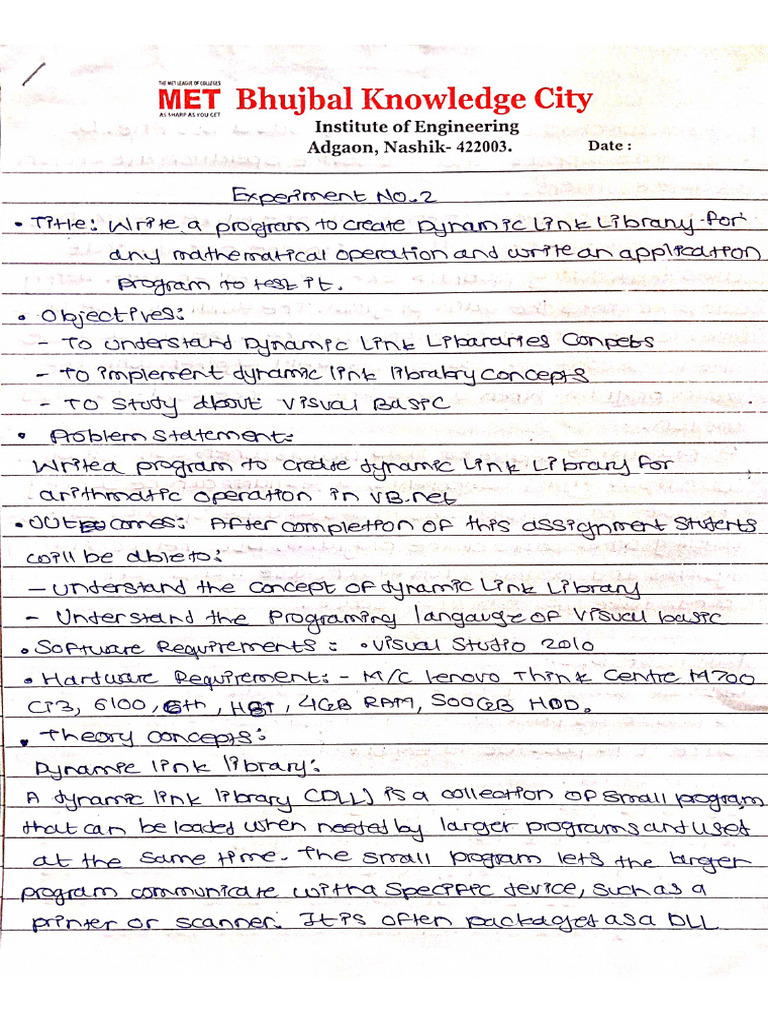 THE MET LEAGUE OF COLLEGES
MET Bhujbal Knowledge City
AS SHARP AS YOU GET
Institute of Engineering
Adgaon, Nashik- 422003. Date :
Experiment No.2
• Title: Write a program to create Dynamic Link Library for
any mathematical operation and write an application
program to test it.
• Objectives:
- To understand Dynamic Link Libararies Conpets
- To implement dynamic link librabry concepts
- To study about visual Basic
• Problem statement:
Write a program to create dynamic Link Library for
arithmatic operation in VB.net
• Outcomes: After completion of this assignment students
will be able to:
- Understand the concept of dynamic Link Library
- Understand the Programing langauge of visual basic
• Software Requirements : • Visual Studio 2010
• Hardware Requirement: - M/C Lenovo Think Centre M700
Ci3, 6100, 6th, , 4GB RAM, 500GB HDD.
• Theory concepts:
Dynamic link library:
A dynamic link library (DLL) is a collection of small program
that can be loaded when needed by larger programs and used
at the same time. The small program lets the larger
program communicate with a specific device, such as a
printer or scanner. It is often packaged as a DLL